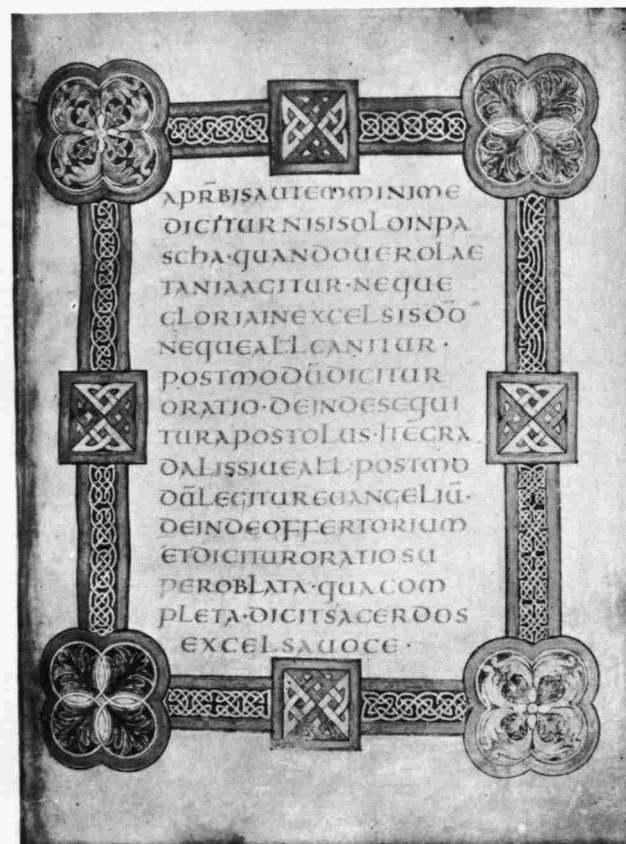 APR̄BISAUTEMMINIME
DICITURNISISOLOINPA
SCHA·QUANDOUEROLAE
TANIAAGITUR·NEQUE
GLORIAINEXCELSISDŌ
NEQUEALLCANITUR·
POSTMODŪDICITUR
ORATIO·DEINDESEQUI
TURAPOSTOLUS·ITEGRA
DALISSIUEALL·POSTMO
DŪLEGITUREUANGELIŪ·
DEINDEOFFERTORIUM
ETDICITURORATIOSU
PEROBLATA·QUACOM
PLETA·DICITSACERDOS
EXCELSAUOCE·